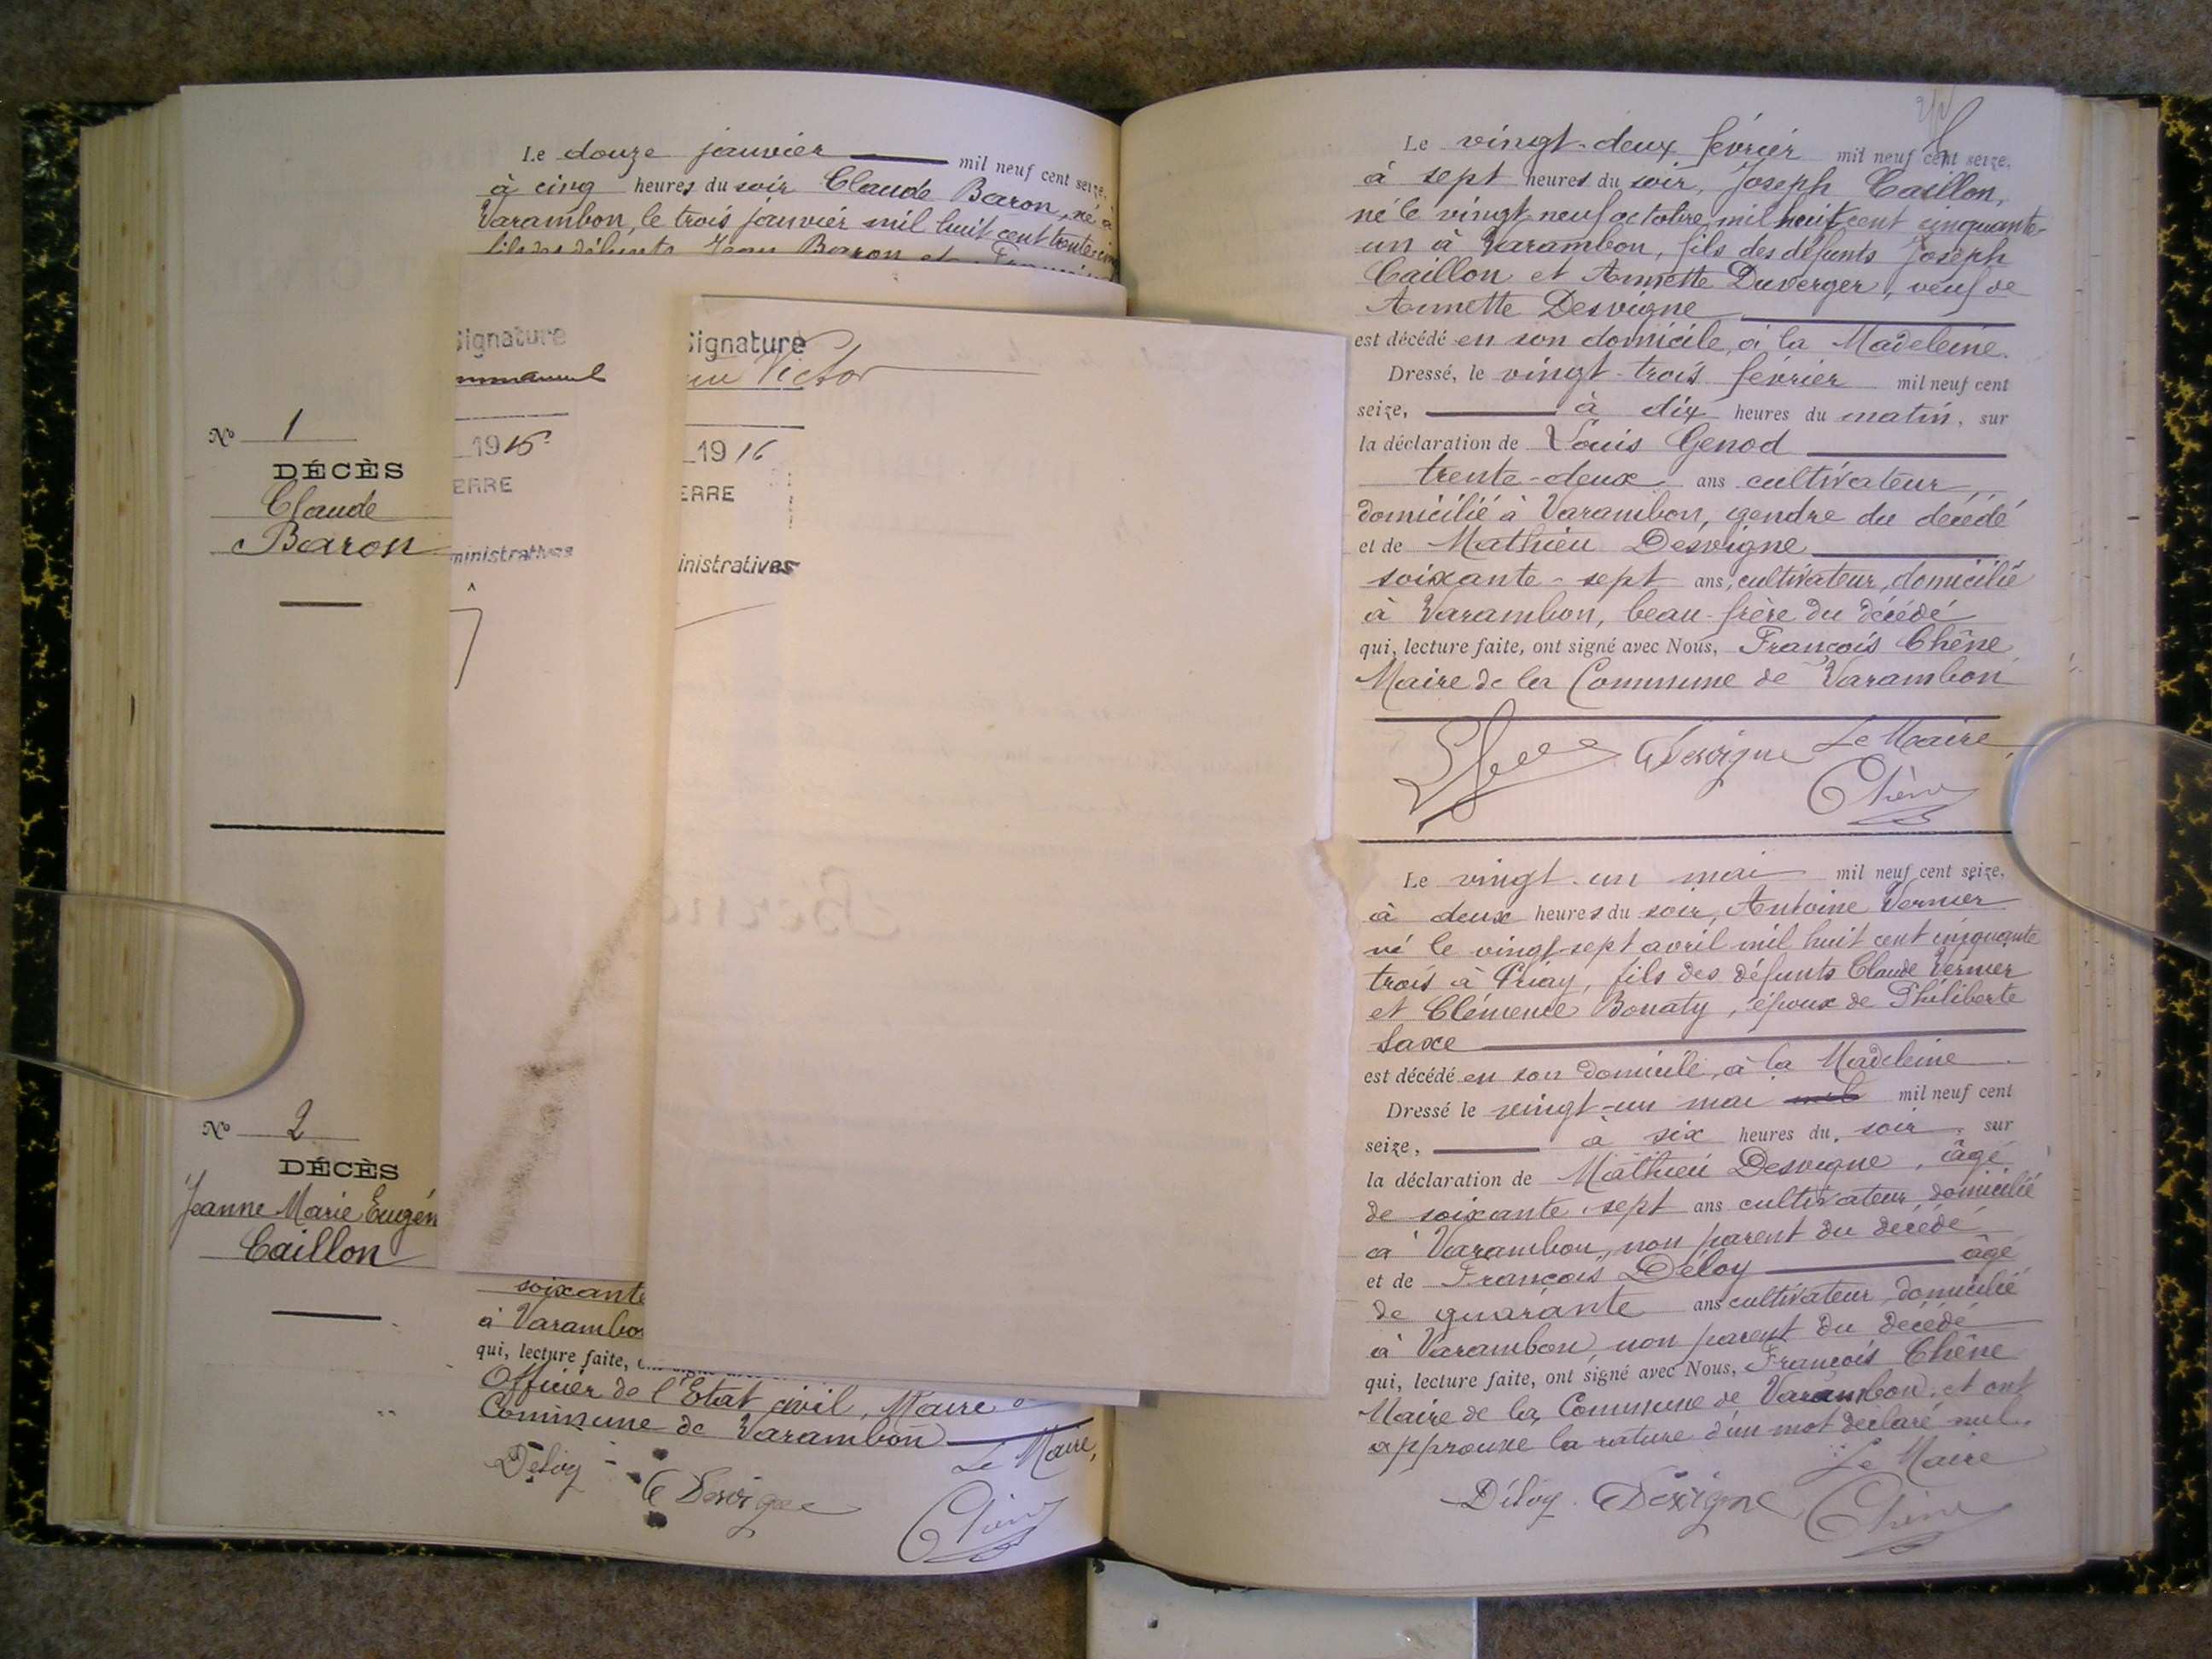 Le douze janvier mil neuf cent seize,
à cinq heures du soir Claude Baron, né à
Varambon, le trois janvier mil huit cent trente cinq
fils des défunts Jean Baron et
Nº 1
DÉCÈS
Claude
Baron
Nº 2
DÉCÈS
Jeanne Marie Eugén
Caillon
signature
1915
ERRE
ministratives
signature
Victor
1916
ERRE
inistratives
soixante
à Varambon
qui, lecture faite,
Officier de l'Etat civil, Maire
Commune de Varambon
Le Maire,
Déloy Desvigne Chêne
Le vingt-deux février mil neuf cent seize,
à sept heures du soir, Joseph Caillon,
né le vingt neuf octobre mil huit cent cinquante-
un à Varambon, fils des défunts Joseph
Caillon et Annette Duverger, veuf de
Annette Desvigne
est décédé en son domicile, à la Madeleine.
Dressé, le vingt-trois février mil neuf cent
seize, à dix heures du matin, sur
la déclaration de Louis Genod
trente-deux ans cultivateur
domicilié à Varambon, gendre du décédé
et de Mathieu Desvigne
soixante-sept ans, cultivateur, domicilié
à Varambon, beau-frère du décédé
qui, lecture faite, ont signé avec Nous, François Chêne
Maire de la Commune de Varambon
Desvigne Le Maire,
Chêne
Le vingt-un mai mil neuf cent seize,
à deux heures du soir, Antoine Vernier
né le vingt-sept avril mil huit cent cinquante
trois à Priay, fils des défunts Claude Vernier
et Clémence Bonaty, époux de Philiberte
Saxe
est décédé en son domicile, à la Madeleine
Dressé le vingt-un mai mil mil neuf cent
seize, à six heures du soir, sur
la déclaration de Mathieu Desvigne, âgé
de soixante-sept ans cultivateur domicilié
à Varambon, non parent du décédé
et de François Déloy âgé
de quarante ans cultivateur, domicilié
à Varambon, non parent du décédé
qui, lecture faite, ont signé avec Nous, François Chêne
Maire de la Commune de Varambon, et ont
approuvé la rature d'un mot déclaré nul.
Le Maire
Déloy Desvigne Chêne